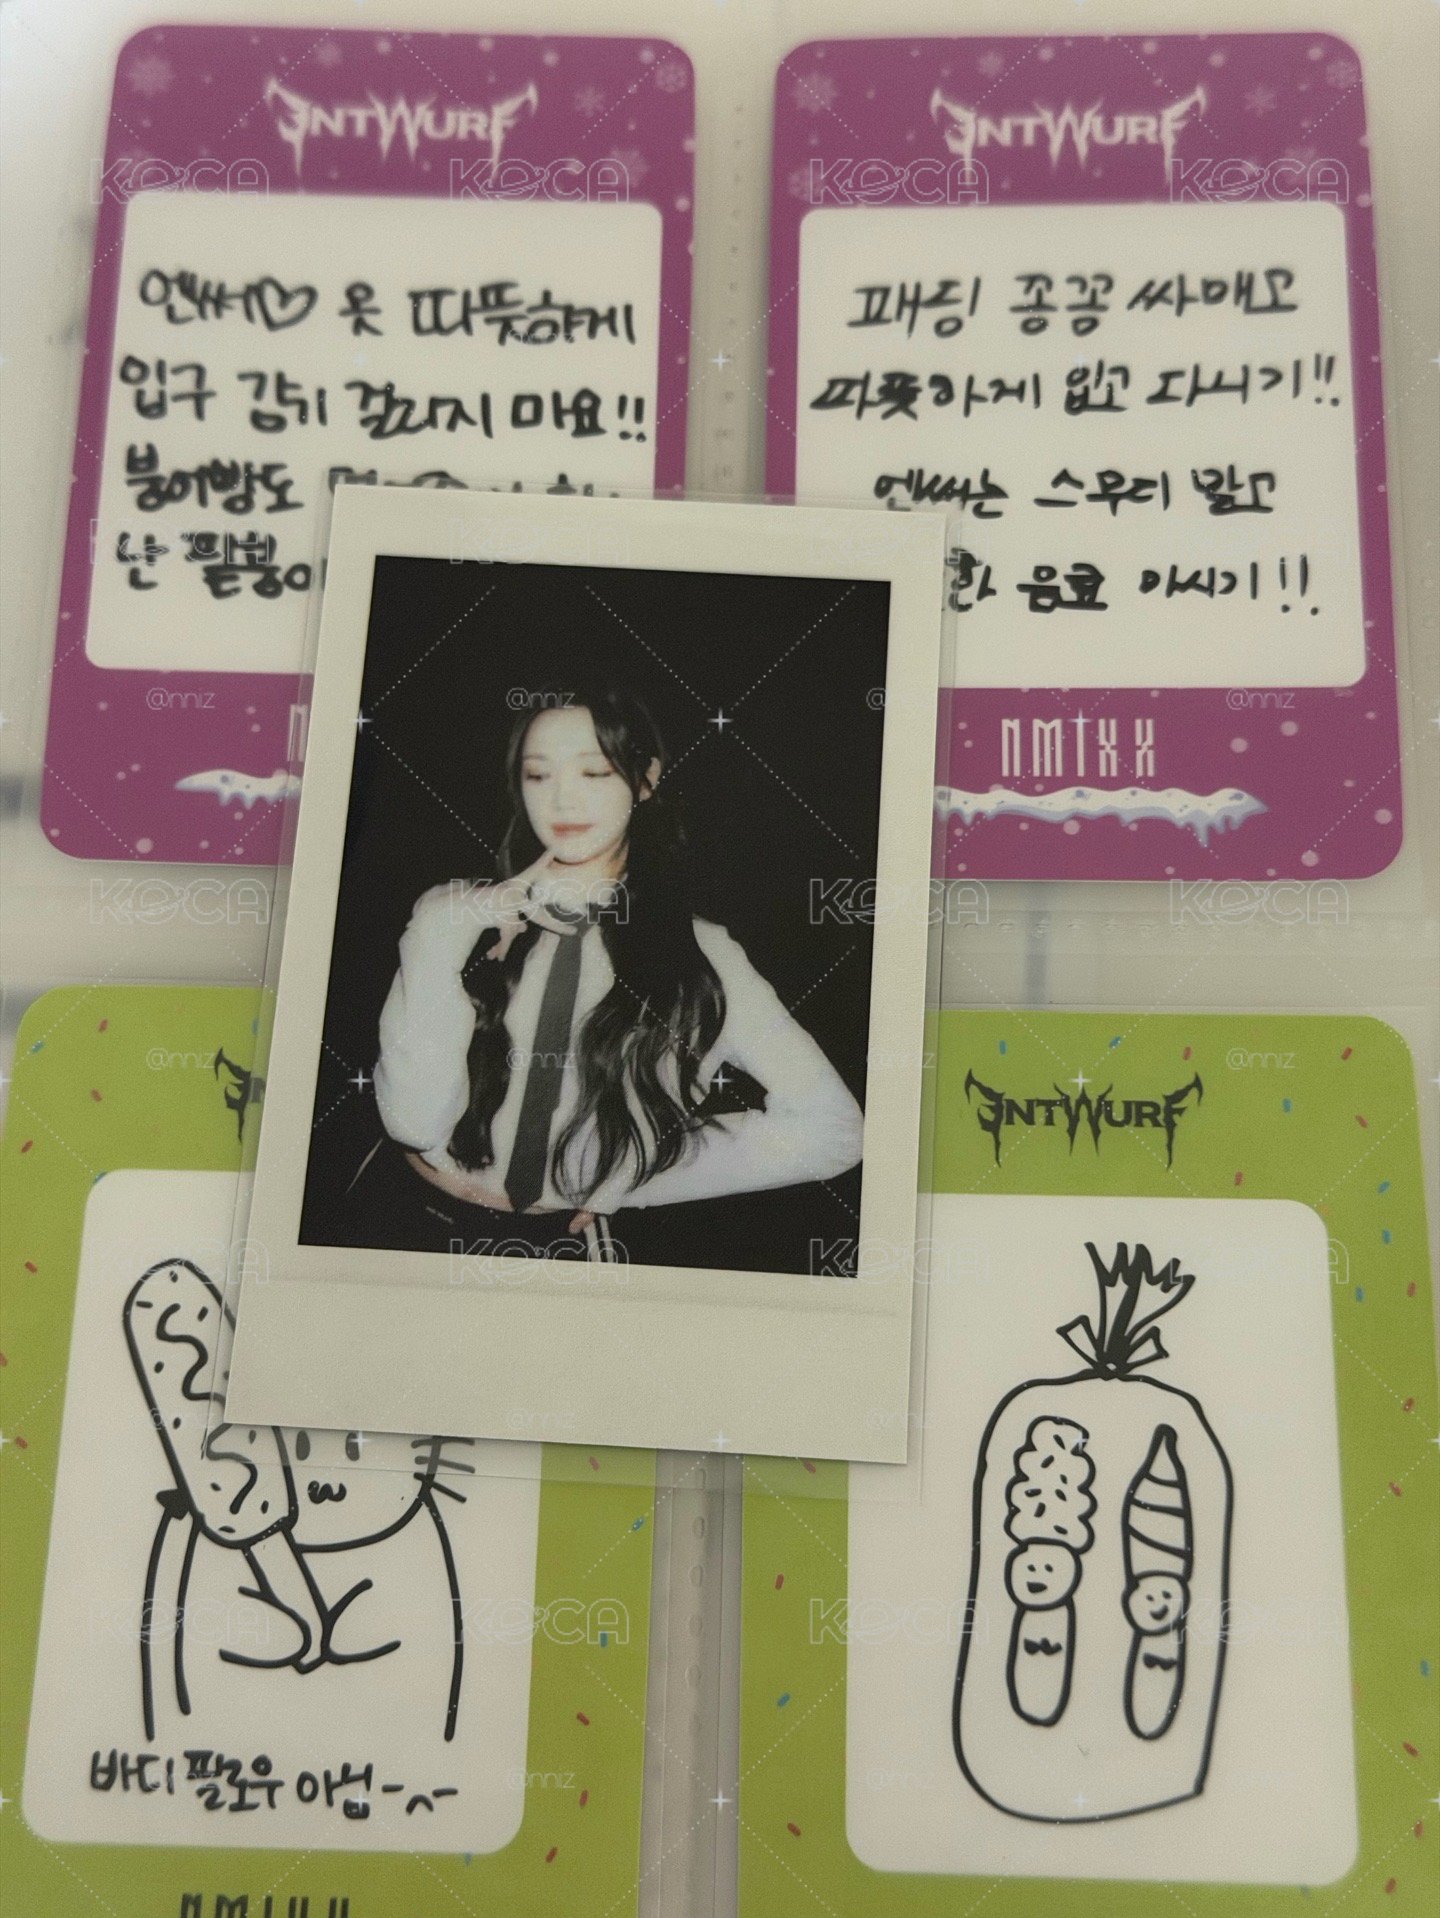 ENTWURF
엔써♡ 옷 따뜻하게
입구 감기 걸리지 마요!!
붕어빵도
난 팥붕
ENTWURF
패딩 종꽁 싸매고
따뜻하게 입고 다시기!!
엔써는 스무디 말고
음료 마시기!!
NMIXX
바디 필로우 아님
ENTWURF
KOCA
@nniz